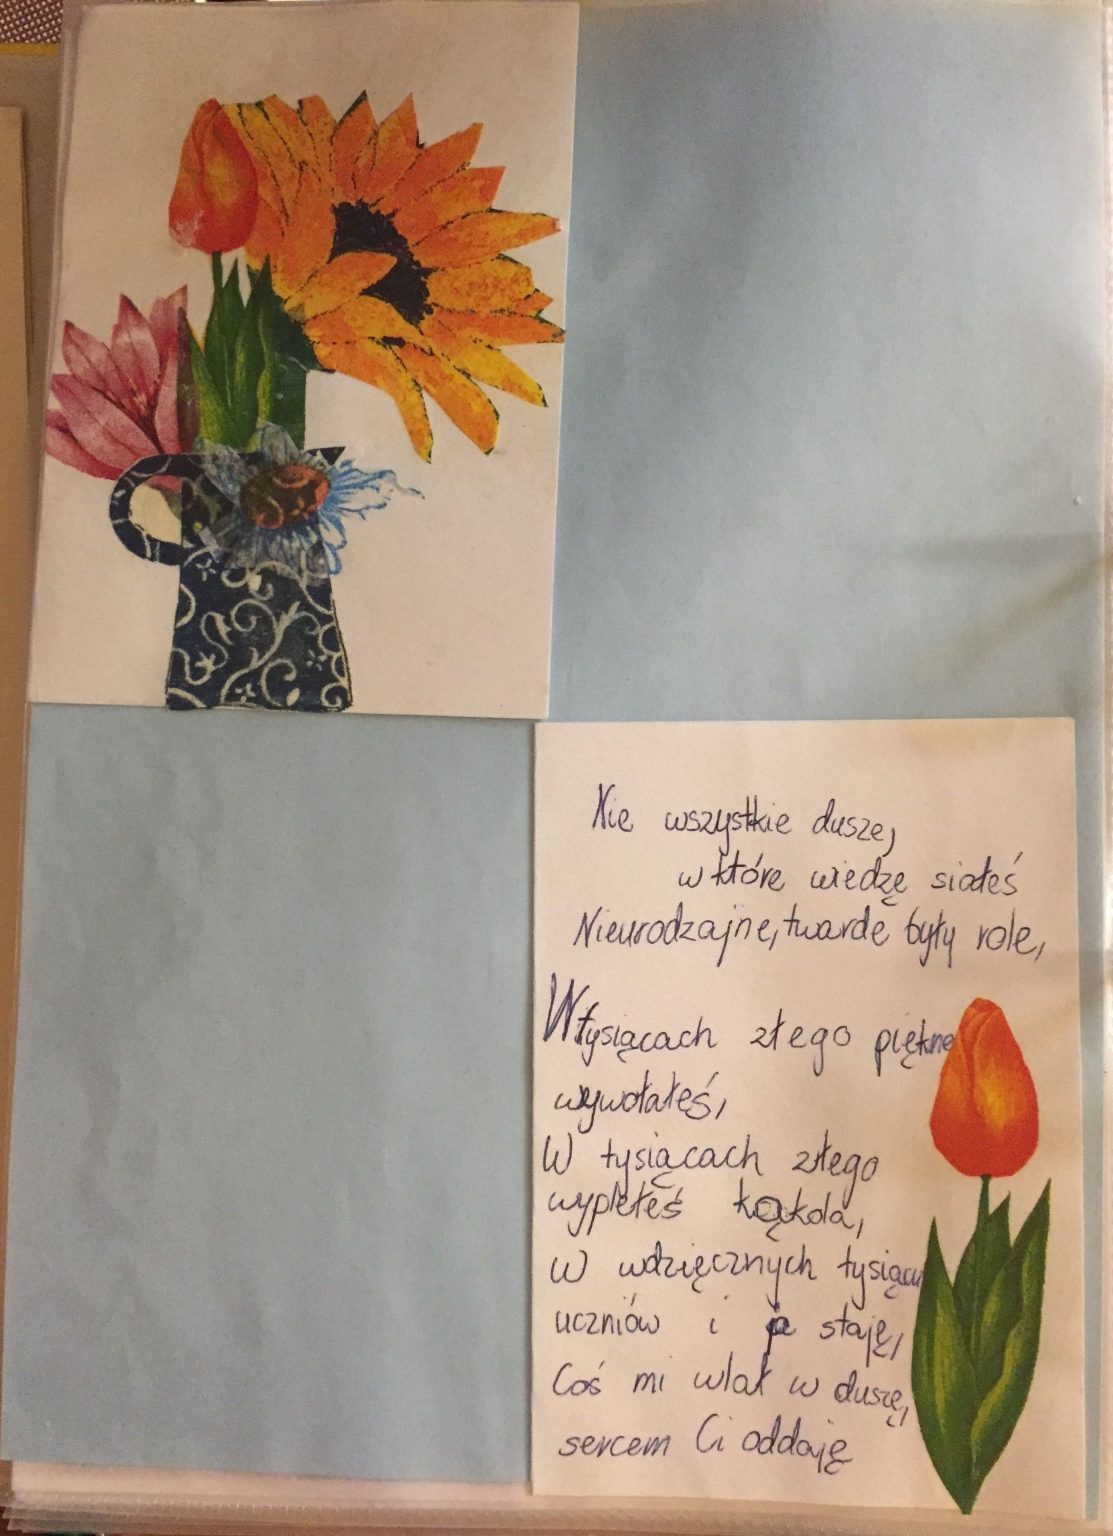 Nie wszystkie dusze,
w które wiedzę siałeś
Nieurodzajne, twarde były role,
W tysiącach złego piękne
wywołałeś,
W tysiącach złego
wyplełeś kąkola,
W wdzięcznych tysiącu
uczniów i ja staję,
Coś mi wlał w duszę,
sercem Ci oddaję